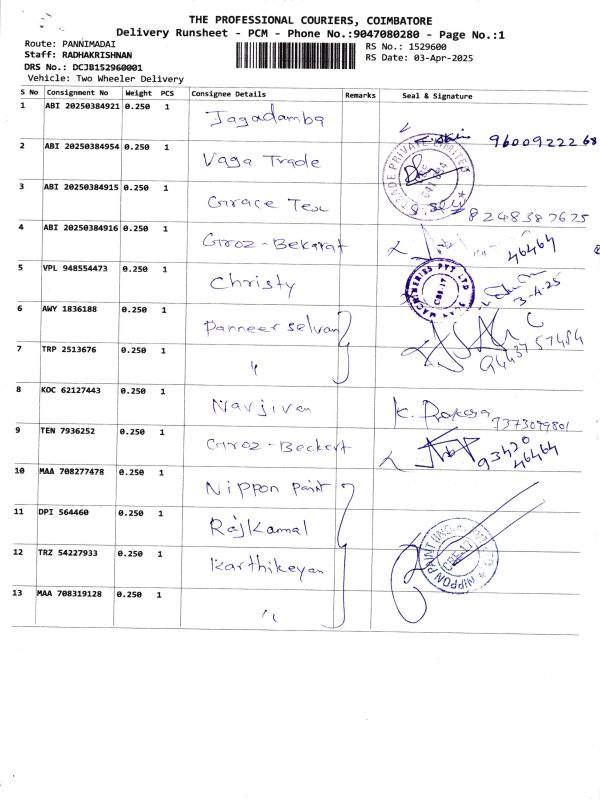 THE PROFESSIONAL COURIERS, COIMBATORE
Delivery Runsheet - PCM - Phone No.:9047080280 - Page No.:1
Route: PANNIMADAI
RS No.: 1529600
Staff: RADHAKRISHNAN
RS Date: 03-Apr-2025
DRS No.: DCJB152960001
Vehicle: Two Wheeler Delivery
S No Consignment No Weight PCS Consignee Details Remarks Seal & Signature
1 ABI 20250384921 0.250 1 Jagadamba 9600922268
2 ABI 20250384954 0.250 1 Vaga Trade
3 ABI 20250384915 0.250 1 Grace Tex 8248387675
4 ABI 20250384916 0.250 1 Groz-Bekarat 46464
5 VPL 948554473 0.250 1 Christy 3-4-25
6 AWY 1836188 0.250 1 Panneer selvan
7 TRP 2513676 0.250 1 " 9443757484
8 KOC 62127443 0.250 1 Navjivan K. 7373079801
9 TEN 7936252 0.250 1 Groz-Beckert 93420 46464
10 MAA 708277478 0.250 1 Nippon Paint
11 DPI 564460 0.250 1 Rajkamal
12 TRZ 54227933 0.250 1 Karthikeyan
13 MAA 708319128 0.250 1 "